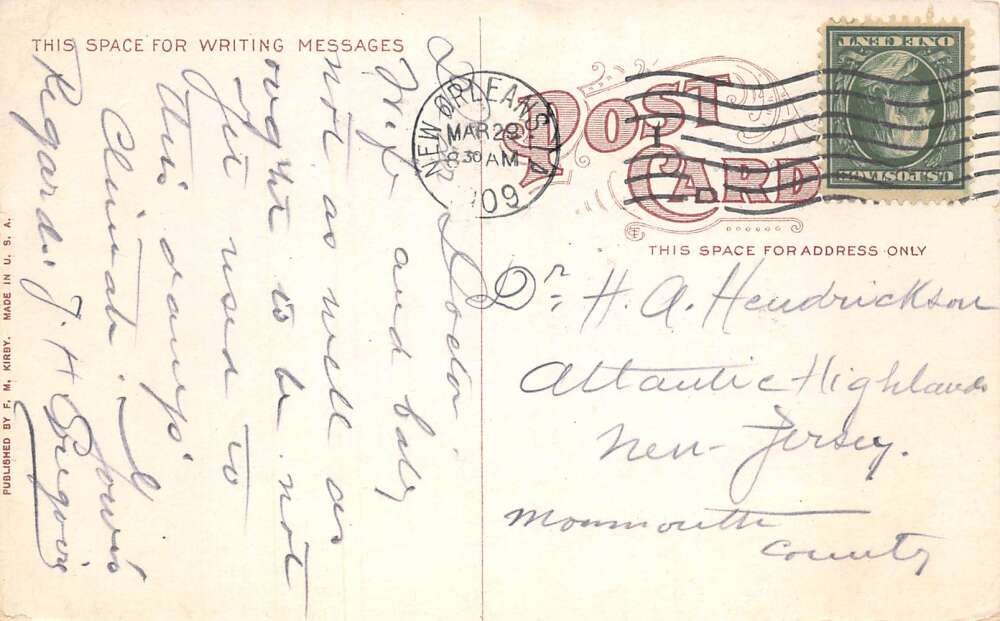 THIS SPACE FOR WRITING MESSAGES
Doctor.
Wife and baby
not as well as
ought to be. not
yet used to
this damp
Climate. Yours
Regards. J. H.
NEW ORLEANS
MAR 29
8 30 AM
'09
POST
CARD
U.S. POSTAGE
ONE CENT
THIS SPACE FOR ADDRESS ONLY
Dr. H. A. Hendrickson
Atlantic Highlands
New-Jersey.
Monmouth
County
PUBLISHED BY F. M. KIRBY. MADE IN U. S. A.